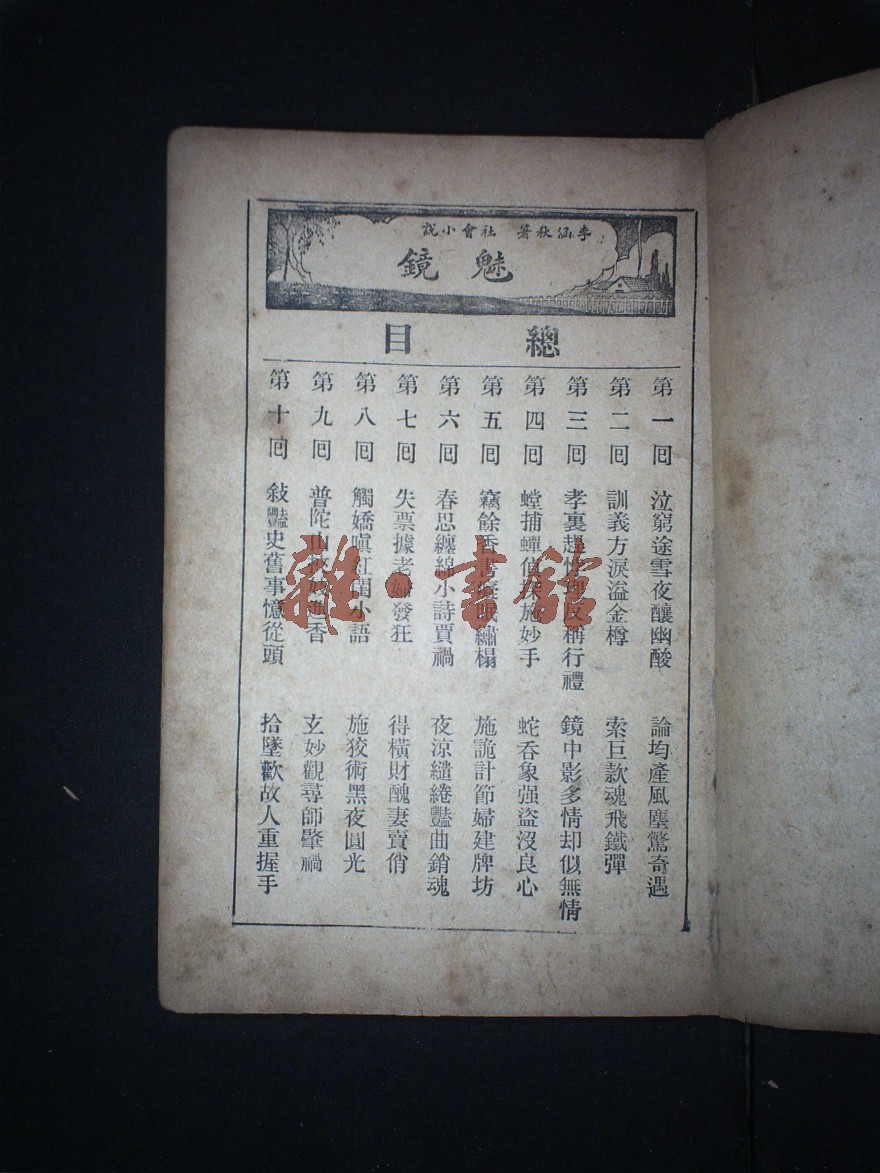 李涵秋著 社會小說
魅鏡
總目
第一回 泣窮途雪夜釀幽酸 論均產風塵驚奇遇
第二回 訓義方淚溢金樽 索巨款魂飛鐵彈
第三回 孝裏趨 反稱行禮 鏡中影多情却似無情
第四回 螳捕蟬偵探施妙手 蛇吞象强盜沒良心
第五回 竊餘香書 繡榻 施詭計節婦建牌坊
第六回 春思纏綿小詩賈禍 夜涼繾綣豔曲銷魂
第七回 失票據老婦發狂 得橫財醜妻賣俏
第八回 觸嬌嗔紅閨小語 施狡術黑夜圓光
第九回 普陀山 香 玄妙觀尋師肇禍
第十回 敍豔史舊事憶從頭 拾墜歡故人重握手
雜·書館